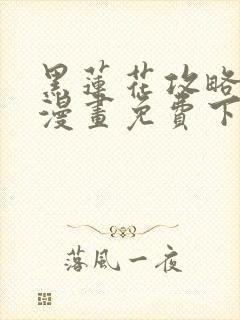 黑蓮花攻略
漫畫免費下
落風一夜